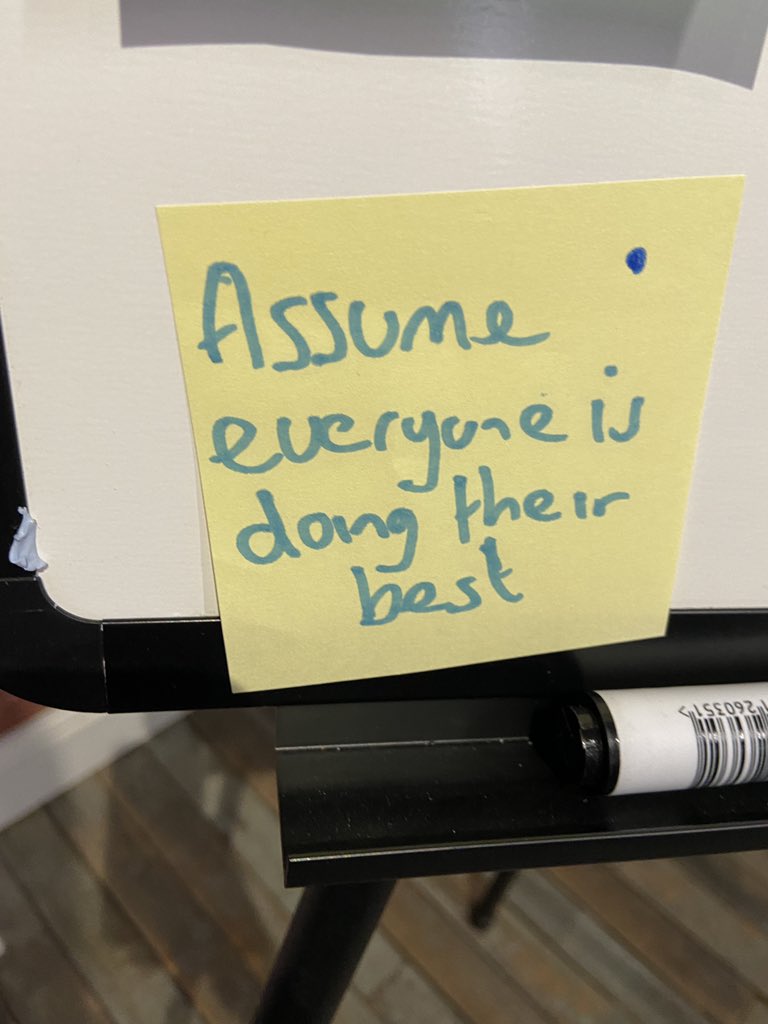 Assume
everyone is
doing their
best
1260351>